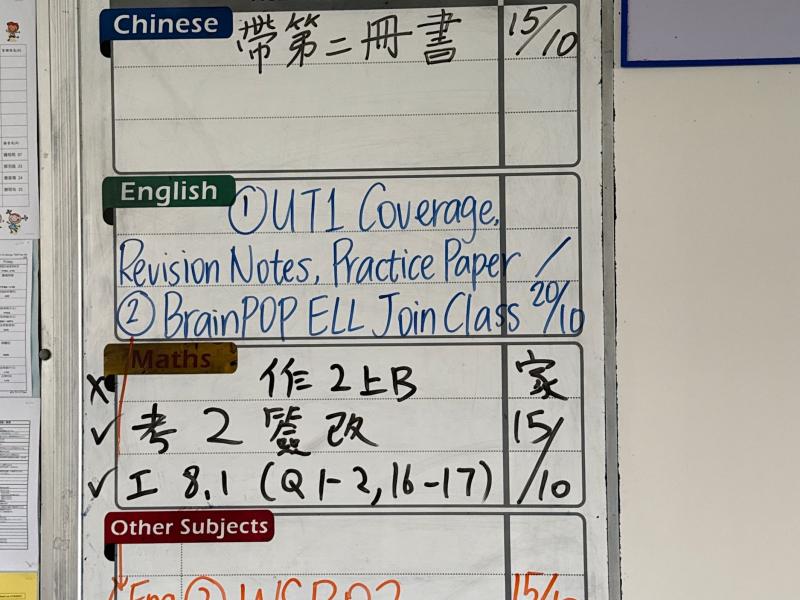 Chinese 帶第二冊書 15/10
English ① UT1 Coverage,
Revision Notes, Practice Paper /
② BrainPOP ELL Join Class 20/10
Maths
X 作 2上B 家
✓ 考 2 簽改 15/
✓ 工 8.1 (Q1-2, 16-17) /10
Other Subjects
Eng ③ WSBP2 15/10